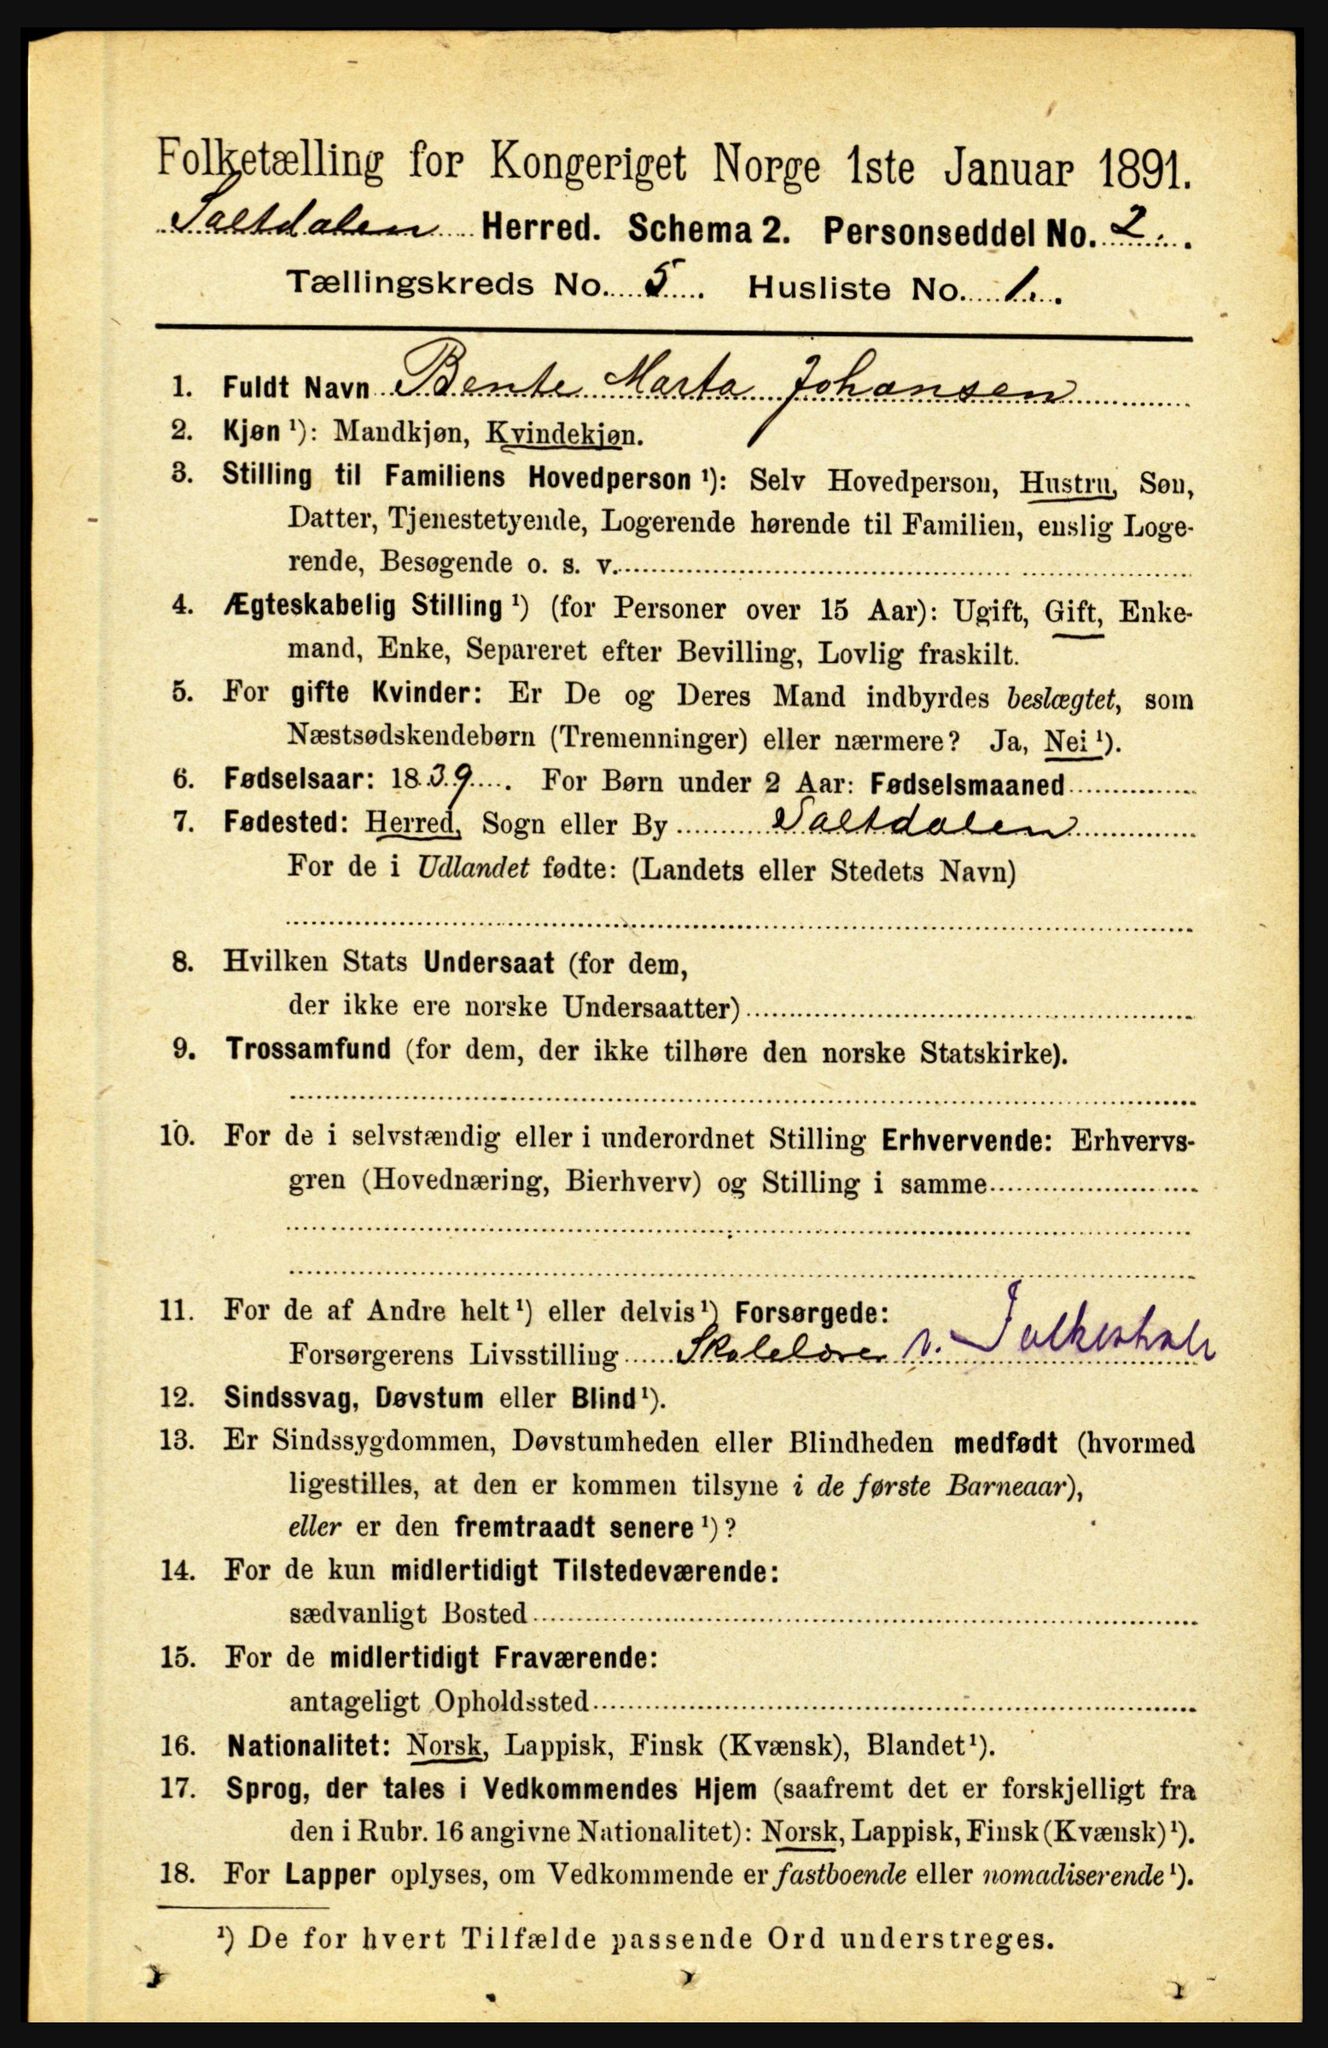 Folketælling for Kongeriget Norge 1ste Januar 1891.
Saltdalen Herred. Schema 2. Personseddel No. 2.
Tællingskreds No. 5. Husliste No. 1.
1. Fuldt Navn Bente Marta Johansen
2. Kjøn ¹): Mandkjøn, Kvindekjøn.
3. Stilling til Familiens Hovedperson ¹): Selv Hovedperson, Hustru, Søn,
Datter, Tjenestetyende, Logerende hørende til Familien, enslig Loge-
rende, Besøgende o. s. v.
4. Ægteskabelig Stilling ¹) (for Personer over 15 Aar): Ugift, Gift, Enke-
mand, Enke, Separeret efter Bevilling, Lovlig fraskilt.
5. For gifte Kvinder: Er De og Deres Mand indbyrdes beslægtet, som
Næstsødskendebørn (Tremenninger) eller nærmere? Ja, Nei ¹).
6. Fødselsaar: 1839. For Børn under 2 Aar: Fødselsmaaned
7. Fødested: Herred, Sogn eller By Saltdalen
For de i Udlandet fødte: (Landets eller Stedets Navn)
8. Hvilken Stats Undersaat (for dem,
der ikke ere norske Undersaatter)
9. Trossamfund (for dem, der ikke tilhøre den norske Statskirke).
10. For de i selvstændig eller i underordnet Stilling Erhvervende: Erhvervs-
gren (Hovednæring, Bierhverv) og Stilling i samme
11. For de af Andre helt ¹) eller delvis ¹) Forsørgede:
Forsørgerens Livsstilling Skolelærer v. Folkeskole
12. Sindssvag, Døvstum eller Blind ¹).
13. Er Sindssygdommen, Døvstumheden eller Blindheden medfødt (hvormed
ligestilles, at den er kommen tilsyne i de første Barneaar),
eller er den fremtraadt senere ¹)?
14. For de kun midlertidigt Tilstedeværende:
sædvanligt Bosted
15. For de midlertidigt Fraværende:
antageligt Opholdssted
16. Nationalitet: Norsk, Lappisk, Finsk (Kvænsk), Blandet ¹).
17. Sprog, der tales i Vedkommendes Hjem (saafremt det er forskjelligt fra
den i Rubr. 16 angivne Nationalitet): Norsk, Lappisk, Finsk (Kvænsk) ¹).
18. For Lapper oplyses, om Vedkommende er fastboende eller nomadiserende ¹).
¹) De for hvert Tilfælde passende Ord understreges.